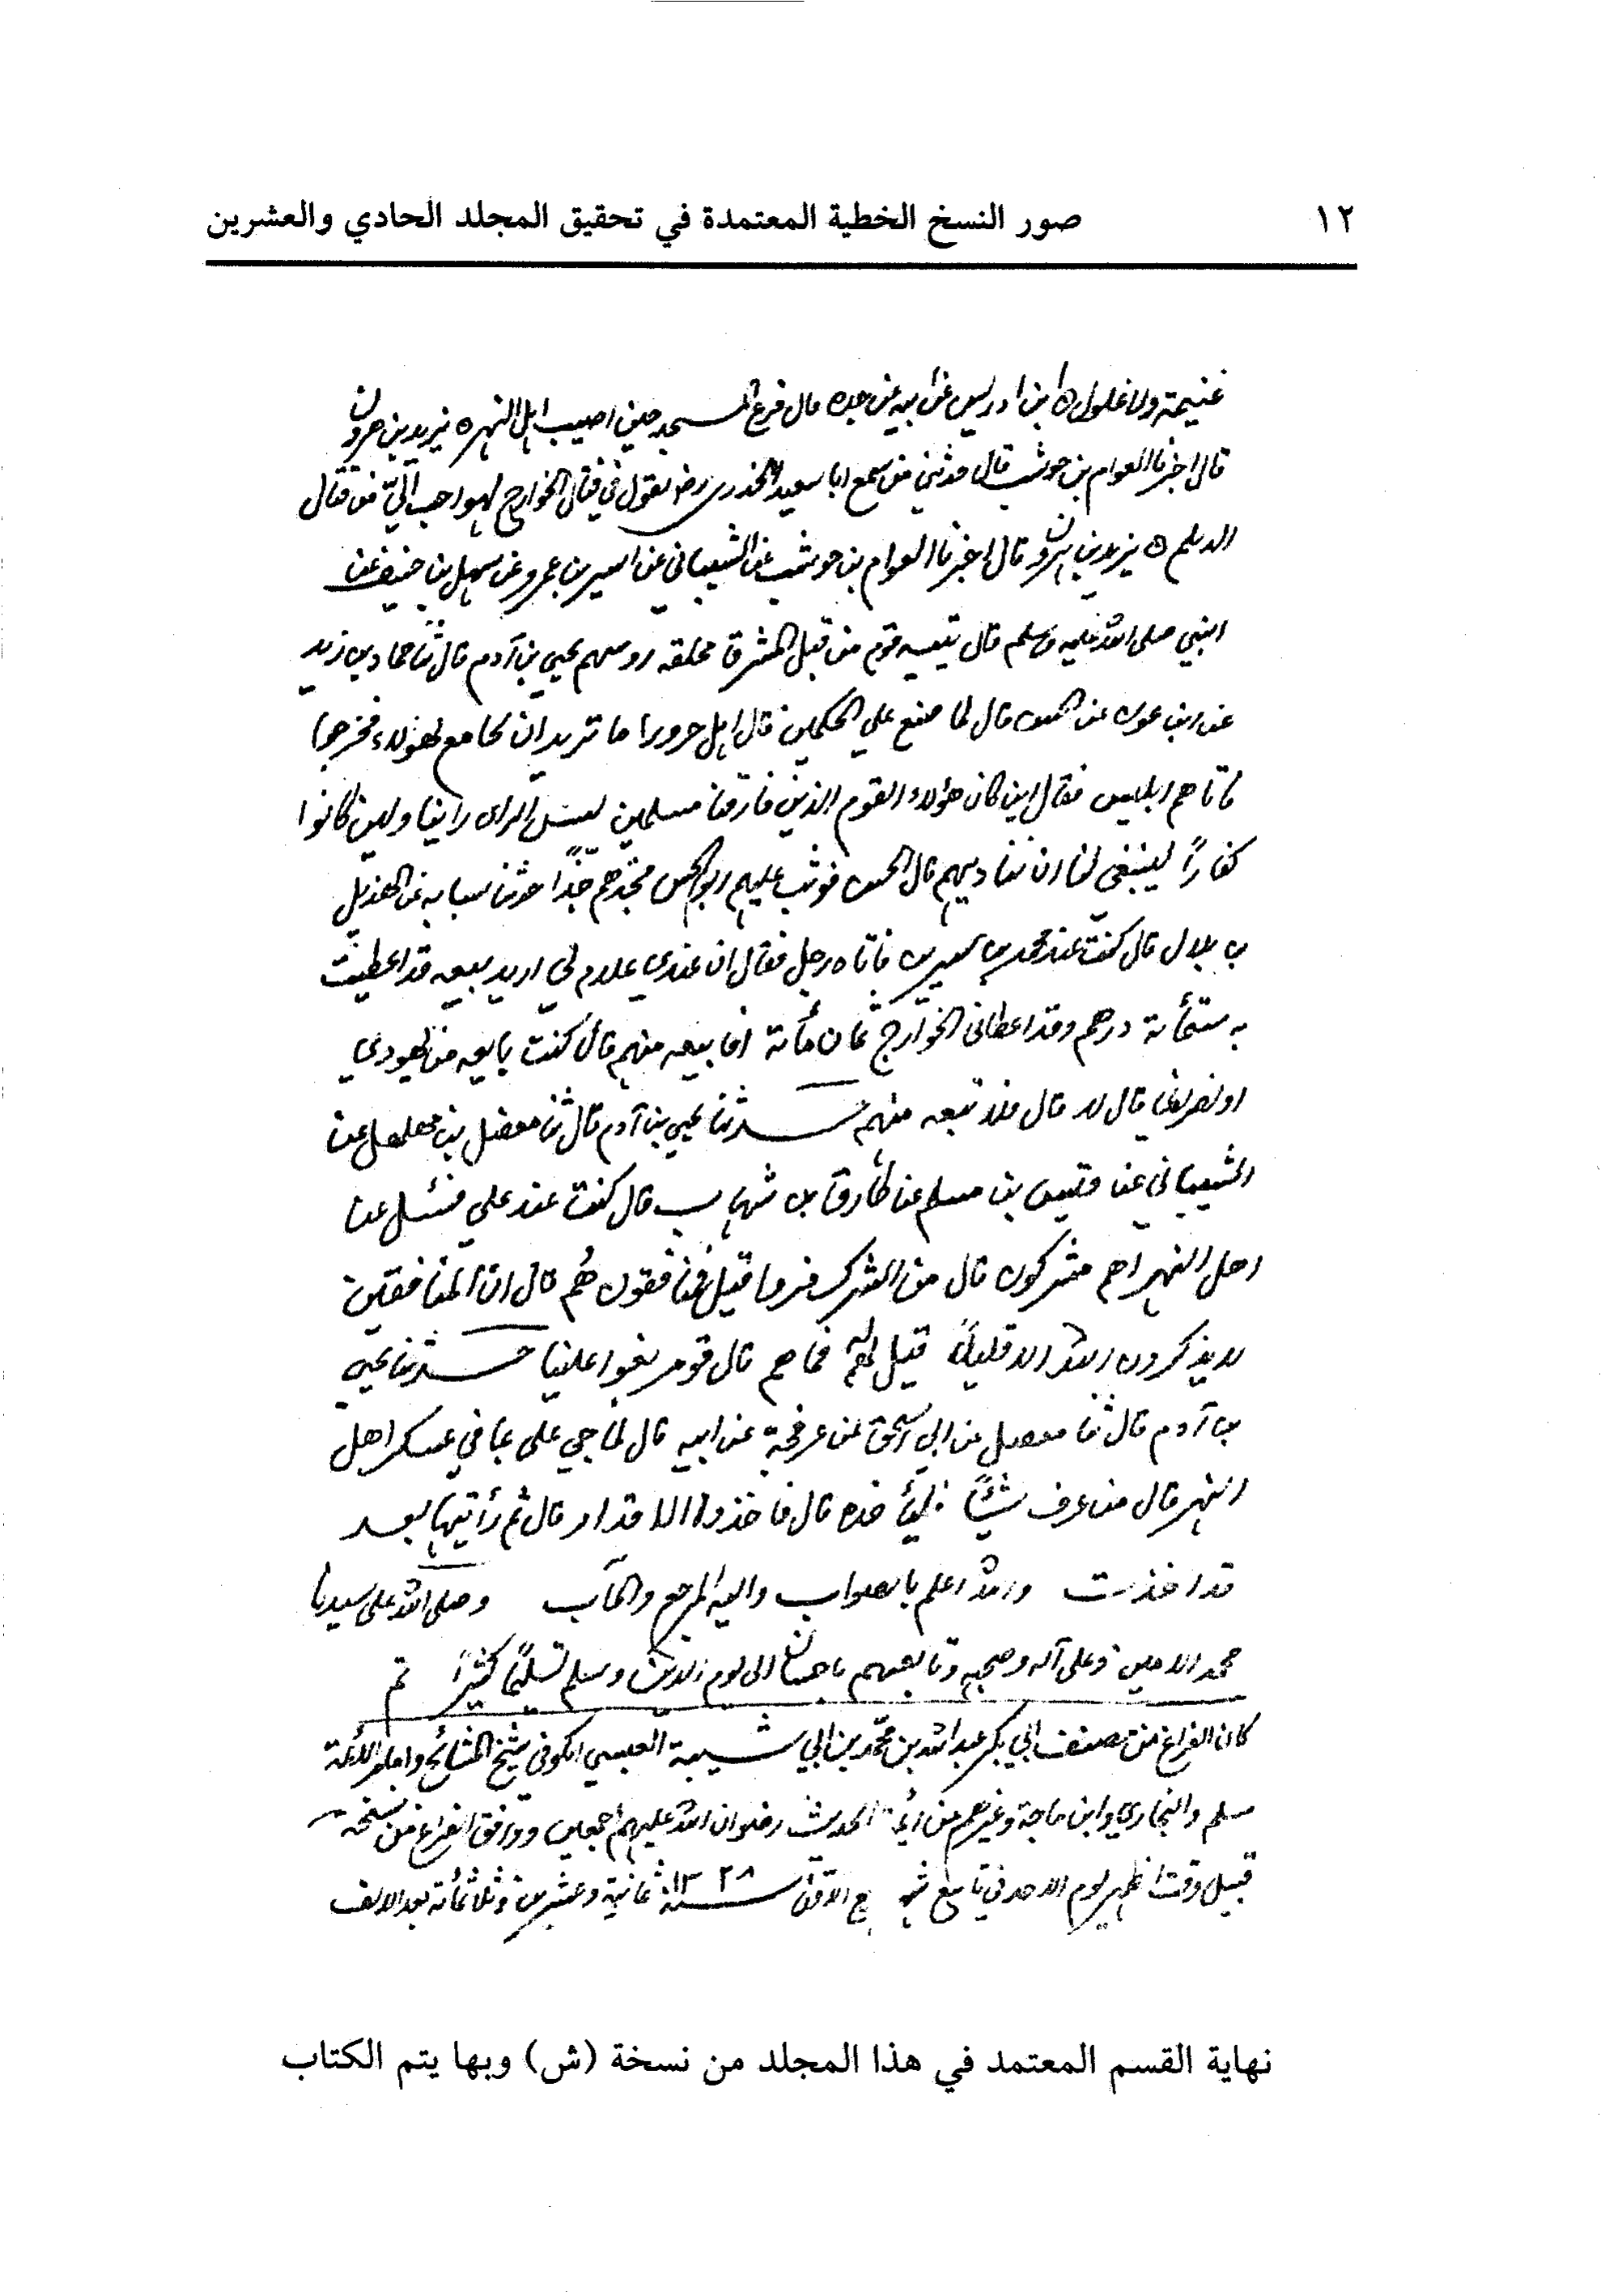 ١٢ صور النسخ الخطية المعتمدة في تحقيق المجلد الحادي والعشرين
غنيمة ولا غلول ه ابن ادريس عن ابيه عن جده قال فزع المسجد حين اصيب اهل النهر ه يزيد بن هرون
قال اخبرنا العوام بن حوشب قال حدثني من سمع ابا سعيد الخدري رض يقول في قتال الخوارج لهو احب اليّ من قتال
الديلم ه يزيد بن هرون قال اخبرنا العوام بن حوشب عن الشيباني عن اسير بن عمرو عن سهل بن حنيف عن
النبي صلى الله عليه وسلم قال يتيه قوم من قبل المشرق محلقه روسهم يحيى بن آدم قال ثنا حماد بن زيد
عن ابن عون عن الحسن قال لما صنع علي الحكمين قال اهل حرورا ما تريد ان تجامع لهؤلاء فخرجوا
فاتاهم ابليس فقال اين كان هؤلاء القوم الذين فارقنا مسلمين لبئس الراى راينا ولين كانوا
كفاراً لينبغي لنا ان نناديهم قال الحسن فوثب عليهم ابو الحسن فجذهم جذاً حدثنا شبابه عن الهذيل
بن بلال قال كنت عند محمد بن سيرين فاتاه رجل فقال ان عندي غلام لي اريد بيعه قد اعطيت
به ستمأية درهم وقد اعطاني الخوارج ثمان مأية افابيعه منهم قال كنت بايعه من يهودي
او نصراني قال لا قال فلا تبعه منهم حدثنا يحيى بن آدم قال ثنا مفضل بن مهلهل عن
الشيباني عن قيس بن مسلم عن طارق بن شهاب قال كنت عند علي فسئل عن
اهل النهر اهم مشركون قال من الشرك فروا قيل فمنافقون هُم قال ان المنافقين
لا يذكرون الله الا قليلاً قيل له فما هم قال قوم بغوا علينا حدثنا يحيى
بن آدم قال ثنا مفضل عن ابي اسحق عن عرفجة عن ابيه قال لما جي علي بما في عسكر اهل
النهر قال من عرف شيئاً فليأخذه قال فاخذوا الا قدار قال ثم رأيتها بعد
قد اخذت والله اعلم بالصواب واليه المرجع والمآب وصلى الله على سيدنا
محمد الامين وعلى آله وصحبه وتابعيهم باحسان الى يوم الدين وسلم تسليمًا كثيراً تم
كان الفراغ من مصنف ابي بكر عبد الله بن محمد بن ابي شيبة العبسي الكوفي شيخ المشائخ واجل الائمة
مسلم والبخاري وابن ماجة وغيرهم من أئمة الحديث رضوان الله عليهم اجمعين ووافق الفراغ من نسخه
قبيل وقت الظهر يوم الاحد في تاسع شهر سنة ١٣٢٨ ثمانية وعشرين وثلاثمأية بعد الالف
نهاية القسم المعتمد في هذا المجلد من نسخة (ش) وبها يتم الكتاب